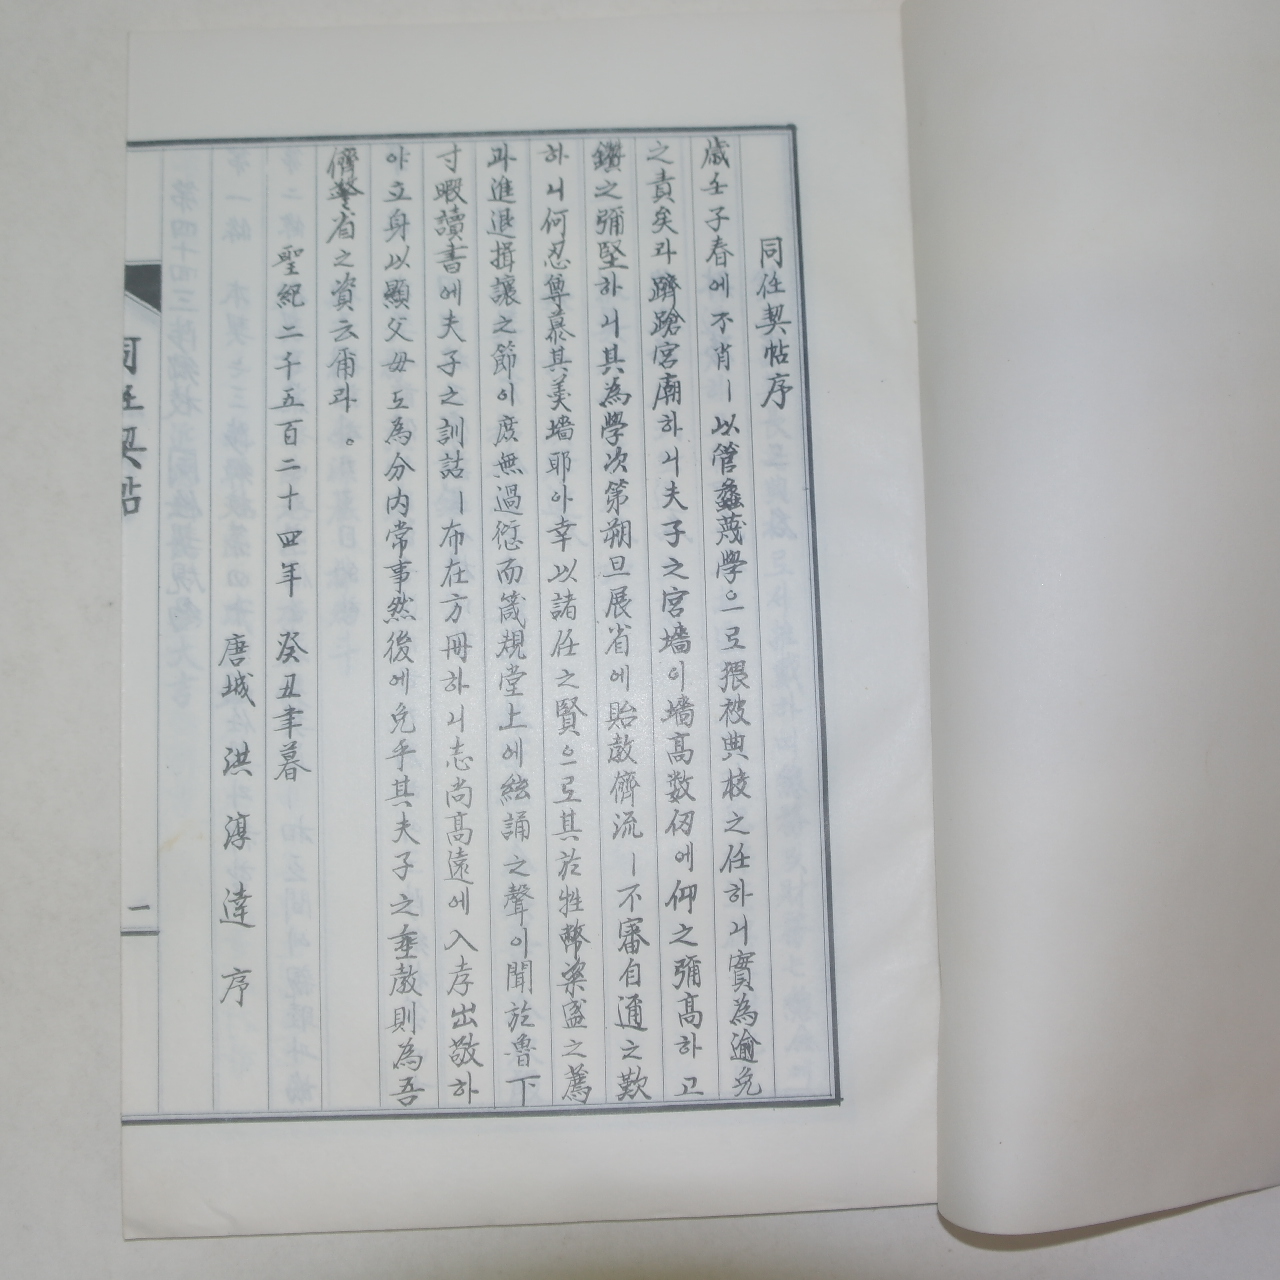 同任契帖序
歲壬子春에不肖ㅣ以管蠡蔑學으로猥被典校之任하니實為逾免
之責矣라躋蹌宮廟하니夫子之宮墻이墻高数仞에仰之彌高하고
鑽之彌堅하니其為學次第朔旦展省에貽敎儕流ㅣ不審自通之歎
하니何忍尊慕其羹墻耶아幸以諸任之賢으로其於牲幣粢盛之薦
과進退揖讓之節이度無過愆而箴規堂上에絃誦之聲이聞於魯下
寸暇讀書에夫子之訓詁ㅣ布在方冊하니志尚高遠에入孝出敬하
야立身以顯父母도為分内常事然後에免乎其夫子之垂敎則為吾
儕警省之資云爾라。
聖紀二千五百二十四年 癸丑聿暮
唐城 洪淳達 序
同任契帖
一